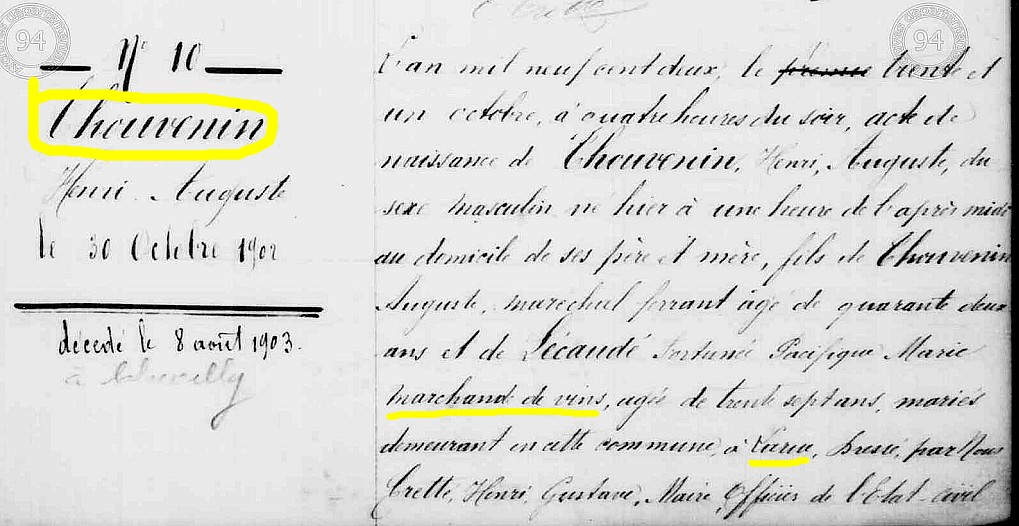 94
94
Nº 10
Thouvenin
Henri Auguste
le 30 Octobre 1902
décédé le 8 août 1903.
à Chevilly
L'an mil neuf cent deux, le premier trente et
un octobre, à quatre heures du soir, acte de
naissance de Thouvenin, Henri, Auguste, du
sexe masculin né hier à une heure de l'après midi
au domicile de ses père et mère, fils de Thouvenin
Auguste, maréchal ferrant âgé de quarante deux
ans et de Lécaudé Fortunée Pacifique Marie
marchand de vins, agée de trente sept ans, mariés
demeurant en cette commune, à Larue, Dressé, par Nous
Crette, Henri, Gustave, Maire, Officier de l'Etat-civil